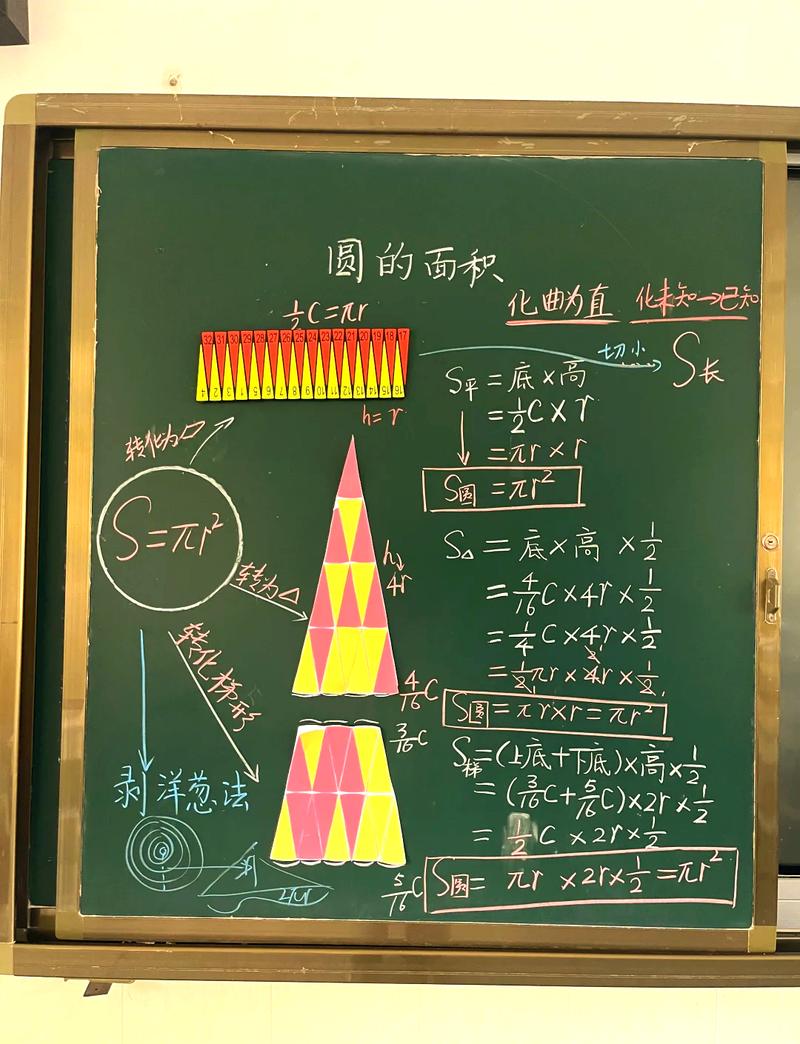 圆的面积
化曲为直 化未知→已知
½C=πr
32 31 30 29 28 27 26 25 24 23 22 21 20 19 18 17
1 2 3 4 5 6 7 8 9 10 11 12 13 14 15 16
h=r
切小
S长
S平=底×高
=½C×r
=πr×r
S圆=πr²
转化为▱
S=πr²
转为△
转化梯形
h
4r
4/16C
3/16C
5/16C
S△=底×高×½
=4/16C×4r×½
=¼C×4r×½
=½πr×4r×½
S圆=πr×r=πr²
S梯=(上底+下底)×高×½
=(3/16C+5/16C)×2r×½
=½C×2r×½
S圆=πr×2r×½=πr²
剥洋葱法
2πr